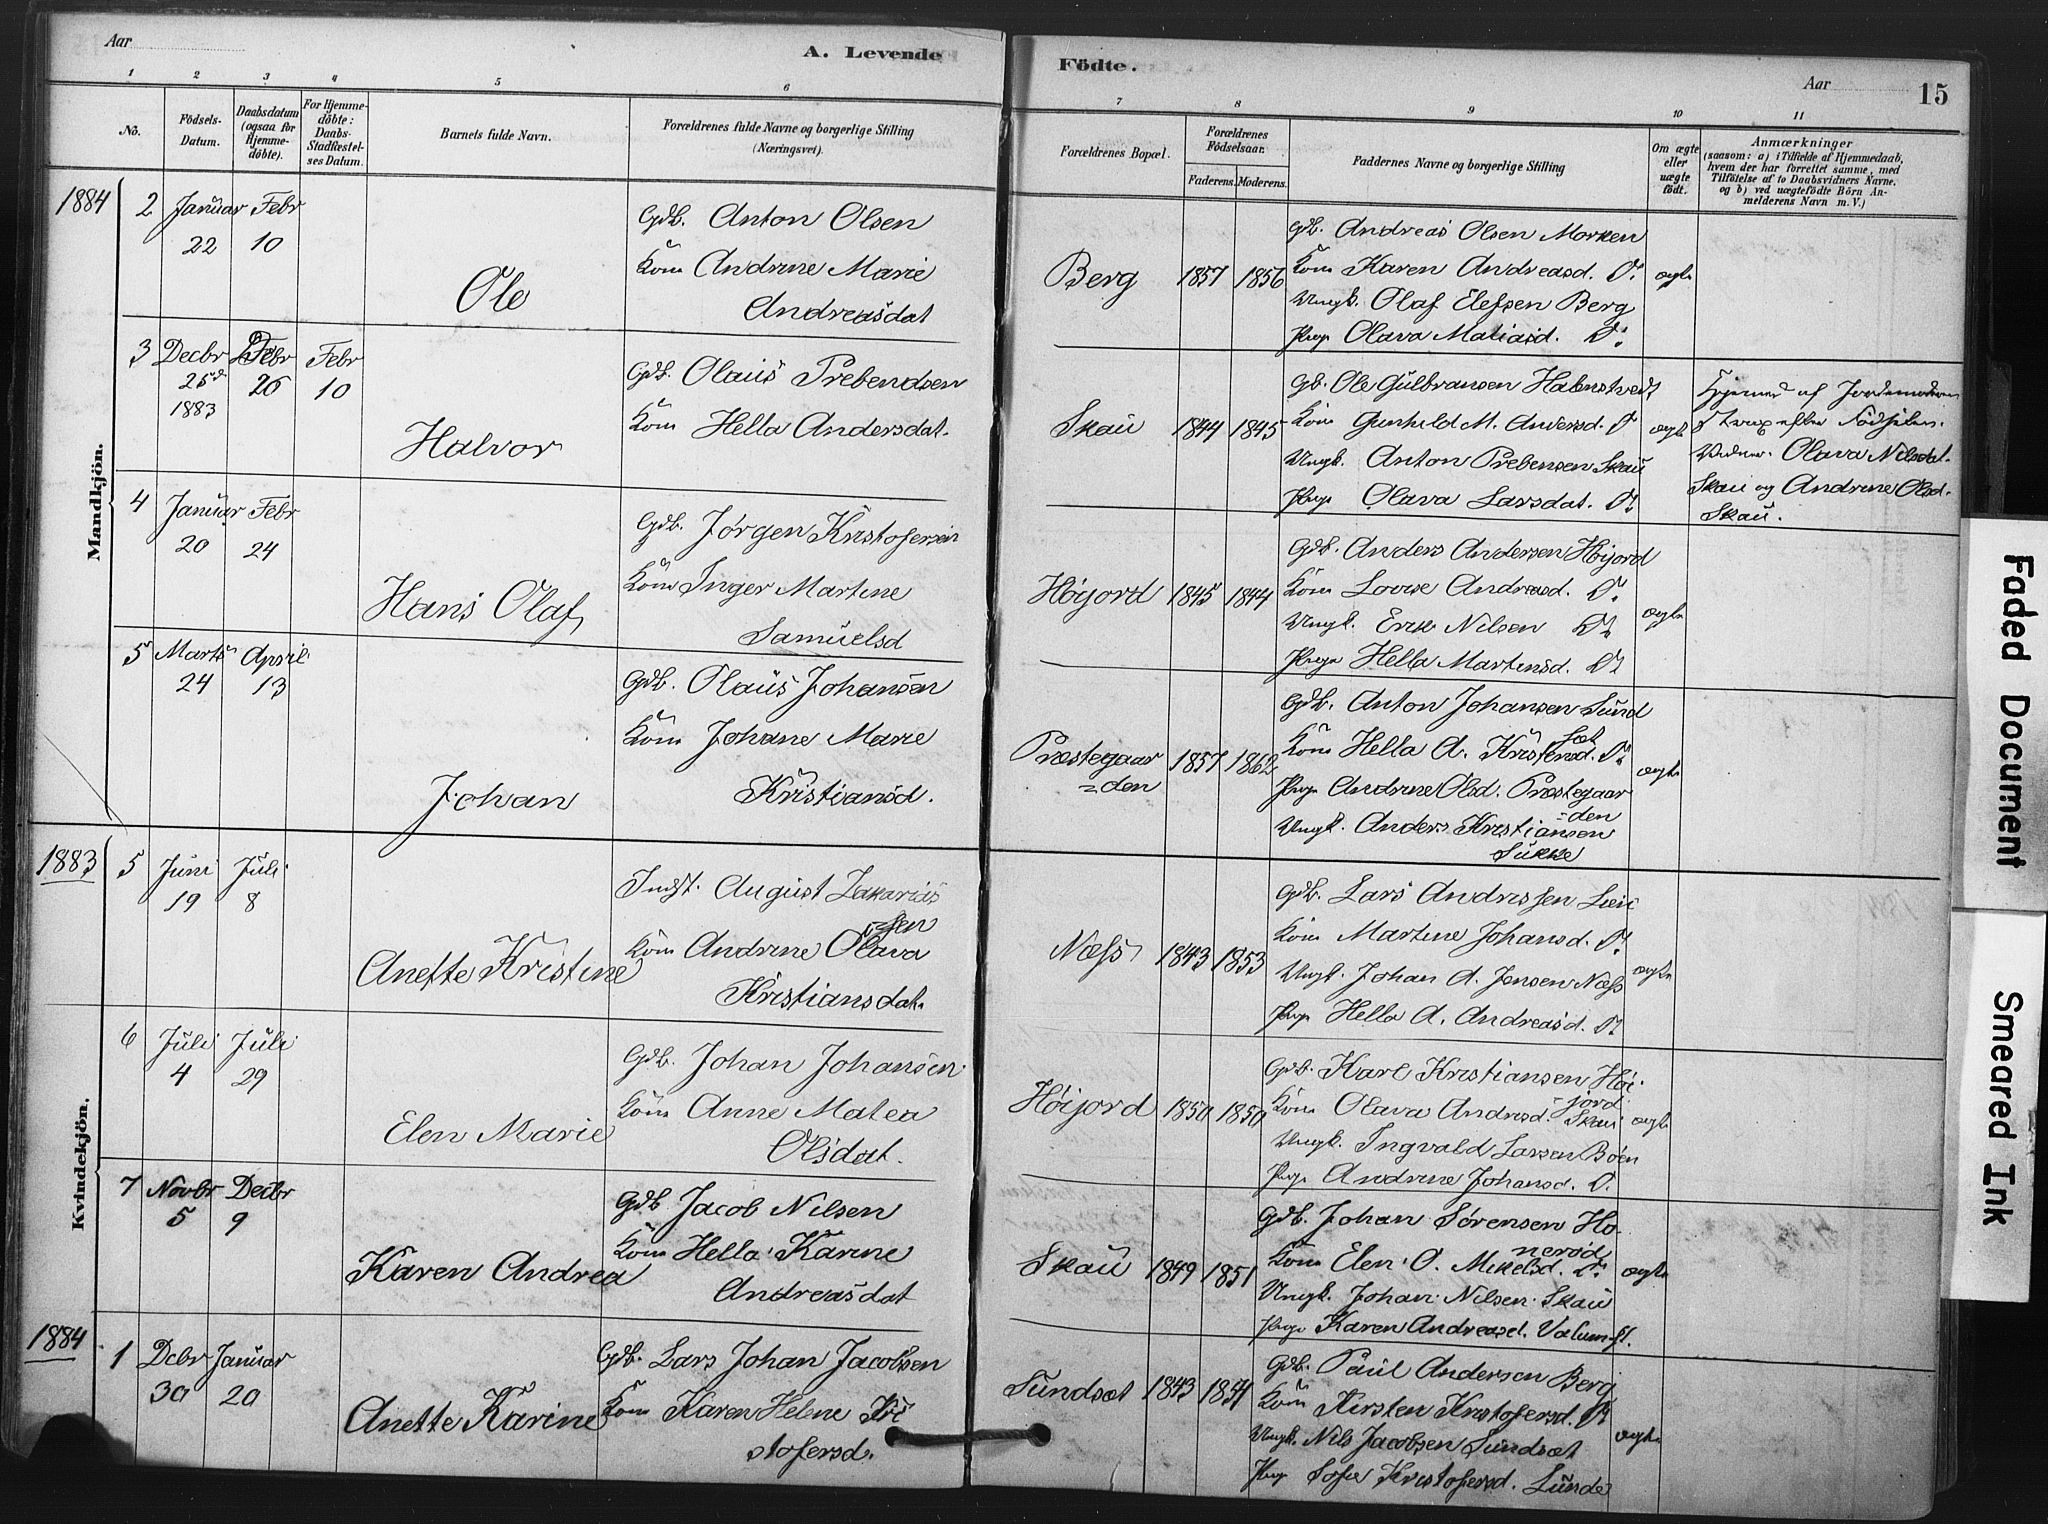 Aar
A. Levende
Födte.
Aar
15
1 2 3 4 5 6 7 8 9 10 11
No.
Födsels-
Datum.
Daabsdatum
(ogsaa for
Hjemme-
døbte).
For Hjemme-
döbte:
Daabs-
Stadfæstel-
ses Datum.
Barnets fulde Navn.
Forældrenes fulde Navne og borgerlige Stilling
(Næringsvei).
Forældrenes Bopæl.
Forældrenes
Födselsaar.
Faderens. Moderens.
Faddernes Navne og borgerlige Stilling
Om ægte
eller
uægte
født.
Anmærkninger
(saasom: a) i Tilfælde af Hjemmedaab,
hvem der har forrettet samme, med
Tilföielse af to Daabsvidners Navne.
og b) ved uægtefödte Börn An-
melderens Navn m. V.)
Mandkjön.
1884
2 Januar Febr
22 10
Ole
Gdb. Anton Olsen
Kom Andrine Marie
Andreasdat
Berg 1857 1856
Gb. Andreas Olsen Morken
Kom Karen Andreasd. Do
Ungk. Olaf Elefsen Berg
Pige Olava Matiasd. Do
ægte
3 Decbr Febr Febr
25d 26 10
1883
Halvor
Gdb. Olaus Prebendsen
Kom Hella Andersdat.
Skau 1844 1845
Gb. Ole Gulbransen Halenstvedt
Kom Gunhild M. Andersd. Do
Ungk. Anton Prebensen Skau
Pige Olava Larsdat. Do
ægte
Hjemmed af Jordemoderen
strax efter Fødselen.
Vidner. Olava Nilsdat.
Skau og Andrine Olsd.
Skau.
4 Januar Febr
20 24
Hans Olaf
Gdb. Jørgen Kristofersen
Kom Inger Martine
Samuelsd
Høijord 1845 1844
Gdb. Anders Andersen Høijord
Kom Lovise Andreasd. Do
Ungk. Erik Nilsen Do
Pige Hella Martinsd. Do
ægte
5 Marts April
24 13
Johan
Gdb. Olaus Johansen
Kom Johane Marie
Kristiansd.
Præstegaar
=den
1857 1862
Gdb. Anton Johansen Sund
sæt
Kom Hella A. Kristensd. Do
Pige Andrine Olsd. Præstegaar
=den
Ungk. Anders Kristiansen
Sukke
ægte
Kvindekjön.
1883
5 Juni Juli
19 8
Anette Kristine
Indst. August Zakarias
sen
Kom Andrine Olava
Kristiansdat.
Næss 1843 1853
Gdb. Lars Andressen Lieie
Kom Martine Johansd. Do
Ungk. Johan A. Jensen Næss
Pige Hella A. Andreasd. Do
ægte
6 Juli Juli
4 29
Elen Marie
Gdb. Johan Johansen
Kom Anne Matea
Olsdat.
Høijord 1850 1850
Gdb. Karl Kristiansen Høi-
jord
Kom Olava Andresd. Skau
Ungk. Ingvald Larsen Bøen
Pige Andrine Johansd. Do
ægte
7 Novbr Decbr
5 9
Karen Andrea
Gdb Jacob Nilsen
Kom Hella Karine
Andreasdat
Skau 1849 1851
Gdb. Johan Sørensen Ho-
nerød
Kom Elen O. Mikelsd. Do
Ungk. Johan Nilsen Skau
Pige Karen Andreasd. Valum-
ægte
1884
1 Dcbr Januar
30 20
Anette Karine
Gdb. Lars Johan Jacobsen
Kom Karen Helene Kri
stofersd.
Sundsæt 1843 1854
Gdb. Paul Andersen Berg
Kom Kirsten Kristofersd. Do
Ungk. Nils Jacobsen Sundsæt
Pige Sofie Kristofersd. Lunde
ægte
Faded Document
Smeared Ink